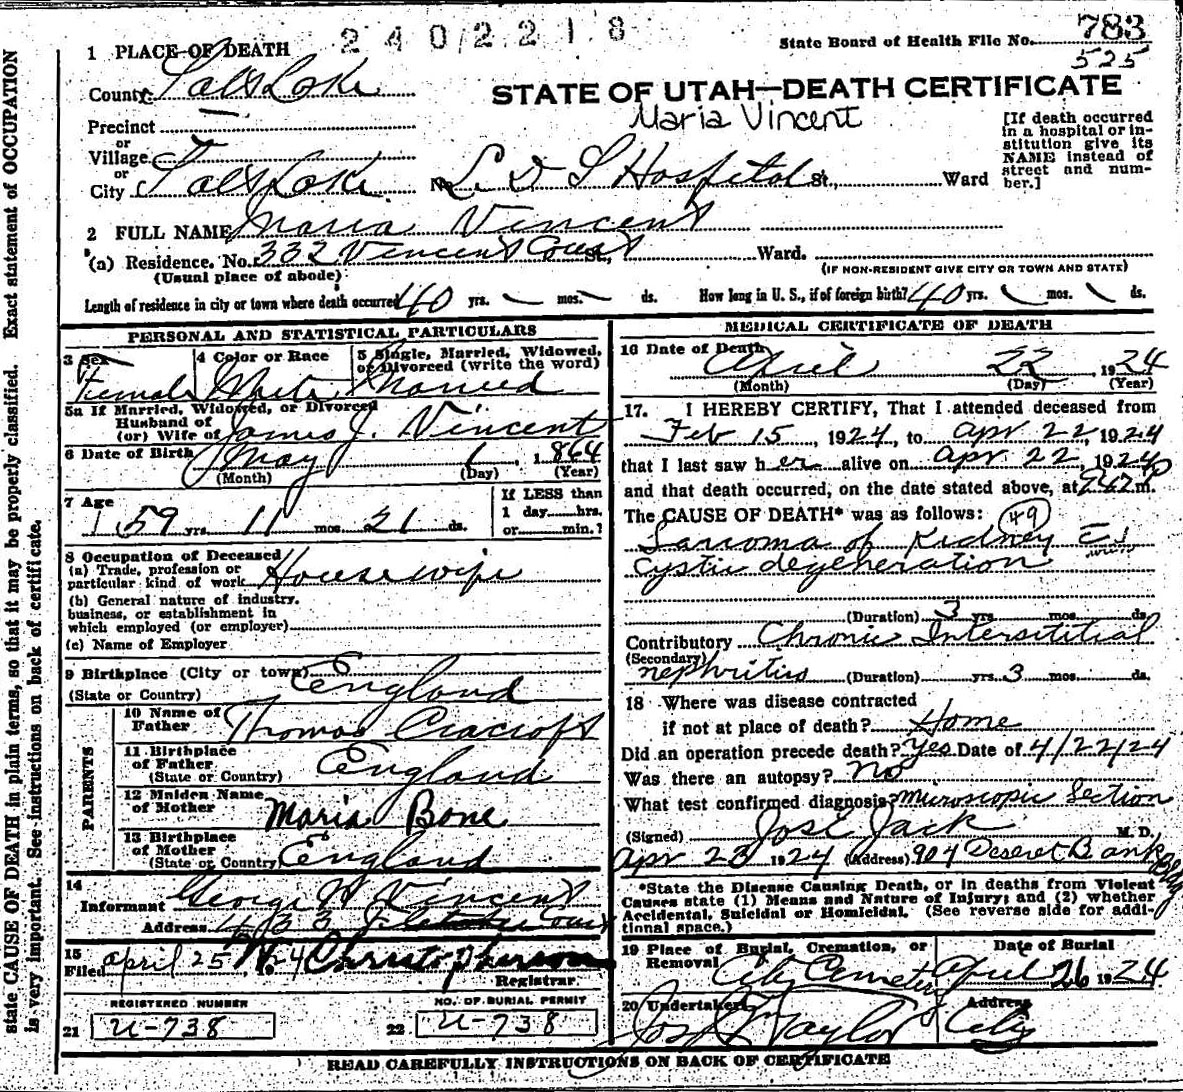 2402218
State Board of Health File No. 783
525
1 PLACE OF DEATH
County Salt Lake
STATE OF UTAH—DEATH CERTIFICATE
Maria Vincent
Precinct
or
Village
or
City Salt Lake No. L. D S Hospital St., Ward
[If death occurred in a hospital or institution give its NAME instead of street and number.]
2 FULL NAME Maria Vincent
(a) Residence. No. 332 Vincent Court St., Ward.
(Usual place of abode)
(IF NON-RESIDENT GIVE CITY OR TOWN AND STATE)
Length of residence in city or town where death occurred 40 yrs. — mos. — ds.
How long in U. S., if of foreign birth? 40 yrs. \ mos. \ ds.
PERSONAL AND STATISTICAL PARTICULARS
3 Sex Female
4 Color or Race White
5 Single, Married, Widowed, or Divorced (write the word) Married
5a If Married, Widowed, or Divorced
Husband of
(or) Wife of James J. Vincent
6 Date of Birth May 1, 1864
(Month) (Day) (Year)
7 Age 59 yrs 11 mos. 21 ds.
If LESS than
1 day hrs.
or min.?
8 Occupation of Deceased
(a) Trade, profession or
particular kind of work Housewife
(b) General nature of industry,
business, or establishment in
which employed (or employer)
(c) Name of Employer
9 Birthplace (City or town)
(State or Country) England
PARENTS
10 Name of
Father Thomas Cracroft
11 Birthplace
of Father
(State or Country) England
12 Maiden Name
of Mother Maria Bone
13 Birthplace
of Mother
(State or Country) England
14
Informant George W Vincent
Address 433 Court
15
Filed April 25 1924 Christopherson
Registrar
REGISTERED NUMBER
21 U-738
NO. OF BURIAL PERMIT
22 U-738
MEDICAL CERTIFICATE OF DEATH
16 Date of Death April 22, 1924
(Month) (Day) (Year)
17. I HEREBY CERTIFY, That I attended deceased from
Feb 15, 1924, to Apr 22, 1924
that I last saw her alive on Apr 22, 1924
and that death occurred, on the date stated above, at m.
The CAUSE OF DEATH* was as follows: 49
Sarcoma of Kidney
Cystic degeneration
(Duration) 3 yrs mos. ds.
Contributory Chronic Interstitial
(Secondary)
nephritis (Duration) yrs. 3 mos. ds.
18 Where was disease contracted
if not at place of death? Home
Did an operation precede death? Yes Date of 4/22/24
Was there an autopsy? no
What test confirmed diagnosis? Microscopic Section
(Signed) Jos E Jack M. D.
Apr 23 1924 (Address) 904 Deseret Bank Bldg
*State the Disease Causing Death, or in deaths from Violent
Causes state (1) Means and Nature of Injury; and (2) whether
Accidental, Suicidal or Homicidal. (See reverse side for additional space.)
19 Place of Burial, Cremation, or
Removal City Cemetery
Date of Burial
April 26 1924
20 Undertaker Jos Wm Taylor
Address City
READ CAREFULLY INSTRUCTIONS ON BACK OF CERTIFICATE
state CAUSE OF DEATH in plain terms, so that it may be properly classified. Exact statement of OCCUPATION
is very important. See instructions on back of certificate.